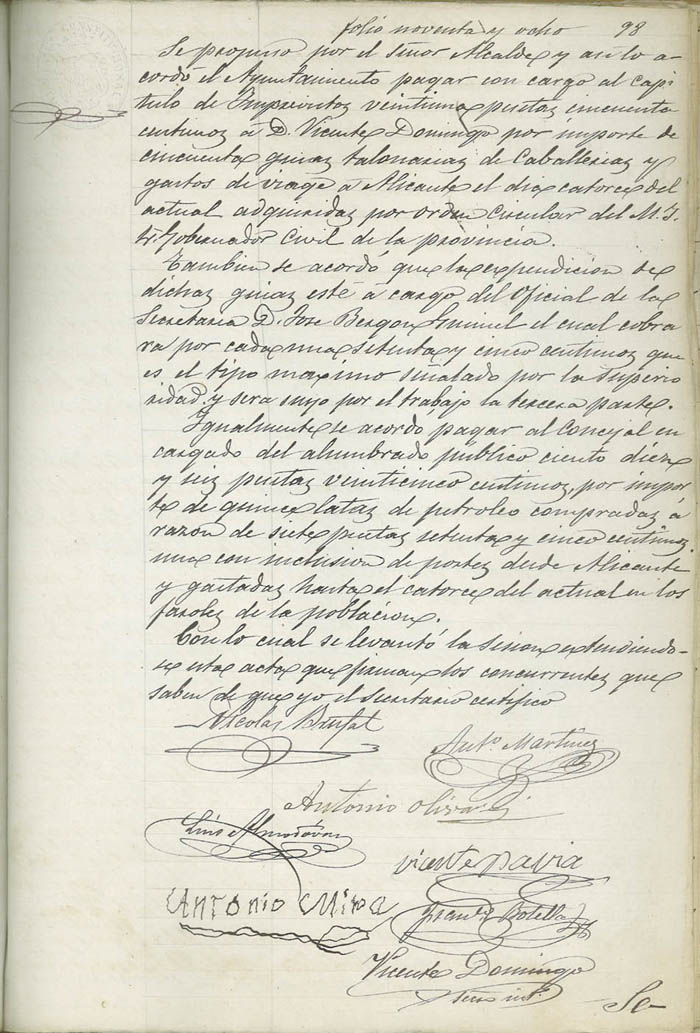 folio noventa y ocho 98
Se propuso por el Señor Alcalde y asi lo a-
cordó el Ayuntamiento pagar con cargo al Capi
tulo de Imprevistos veintiuna pesetas cincuenta
centimos á D. Vicente Domingo por importe de
cincuenta guias talonarias de Caballerias y
gastos de viage á Alicante el dia catorce del
actual adquiridas por orden circular del M. I.
Sr. Gobernador Civil de la provincia.
Tambien se acordó que la expendicion de
dichas guias esté á cargo del Oficial de la
Secretaria D. Jose Bergon el cual cobra
ra por cada una setenta y cinco centimos que
es el tipo maximo señalado por la Superio
ridad y sera suyo por el trabajo la tercera parte.
Igualmente se acordo pagar al Concejal en
cargado del alumbrado publico ciento diez
y seis pesetas veinticinco centimos, por impor
te de quince latas de petroleo compradas á
razon de siete pesetas setenta y cinco centimos
una con inclusion de portes desde Alicante
y gastadas hasta el catorce del actual en los
faroles de la poblacion.
Con lo cual se levantó la sesion extendiendo-
se esta acta que firman los concurrentes que
saben de que yo el Secretario certifico
Nicolás Brufal
Anto. Martinez
Antonio Olivares
Luis Almodóvar
Vicente Davia
Antonio Mira
Franco Botella
Vicente Domingo
Srio int.
Se-